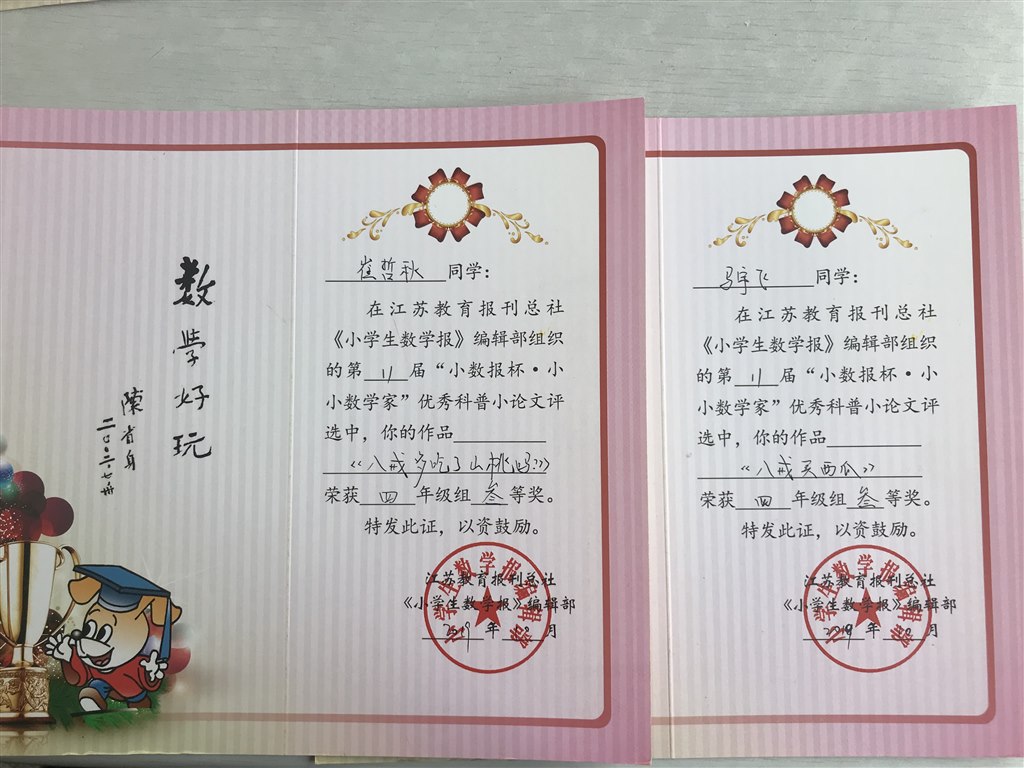 数學好玩
陳省身
崔哲秋同学：
在江苏教育报刊总社
《小学生数学报》编辑部组织
的第11届“小数报杯·小
小数学家”优秀科普小论文评
选中，你的作品
《八戒多吃了山桃吗》
荣获四年级组叁等奖。
特发此证，以资鼓励。
江苏教育报刊总社
《小学生数学报》编辑部
2019年10月
小学生数学报编辑部
马宇飞同学：
在江苏教育报刊总社
《小学生数学报》编辑部组织
的第11届“小数报杯·小
小数学家”优秀科普小论文评
选中，你的作品
《八戒买西瓜》
荣获四年级组叁等奖。
特发此证，以资鼓励。
江苏教育报刊总社
《小学生数学报》编辑部
2019年10月
小学生数学报编辑部